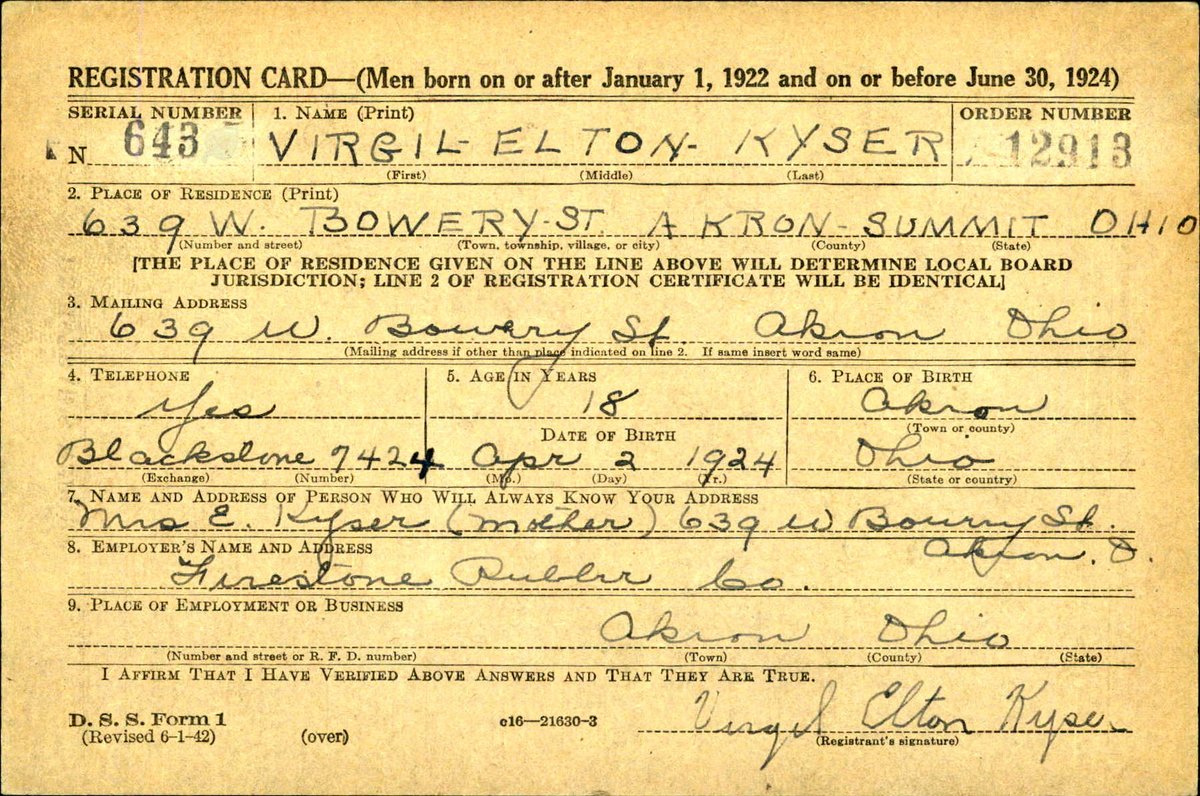 REGISTRATION CARD—(Men born on or after January 1, 1922 and on or before June 30, 1924)
SERIAL NUMBER 1. NAME (Print) ORDER NUMBER
N 643 VIRGIL ELTON KYSER 12913
(First) (Middle) (Last)
2. PLACE OF RESIDENCE (Print)
639 W. BOWERY ST. AKRON SUMMIT OHIO
(Number and street) (Town, township, village, or city) (County) (State)
[THE PLACE OF RESIDENCE GIVEN ON THE LINE ABOVE WILL DETERMINE LOCAL BOARD
JURISDICTION; LINE 2 OF REGISTRATION CERTIFICATE WILL BE IDENTICAL]
3. MAILING ADDRESS
639 W. Bowery St. Akron Ohio
(Mailing address if other than place indicated on line 2. If same insert word same)
4. TELEPHONE 5. AGE IN YEARS 6. PLACE OF BIRTH
Yes 18 Akron
DATE OF BIRTH (Town or county)
Blackstone 7424 Apr 2 1924 Ohio
(Exchange) (Number) (Mo.) (Day) (Yr.) (State or country)
7. NAME AND ADDRESS OF PERSON WHO WILL ALWAYS KNOW YOUR ADDRESS
Mrs E. Kyser (mother) 639 W Bowery St.
8. EMPLOYER'S NAME AND ADDRESS Akron. O.
Firestone Rubber Co.
9. PLACE OF EMPLOYMENT OR BUSINESS
Akron Ohio
(Number and street or R. F. D. number) (Town) (County) (State)
I AFFIRM THAT I HAVE VERIFIED ABOVE ANSWERS AND THAT THEY ARE TRUE.
D. S. S. Form 1 c16—21630-3 Virgil Elton Kyser
(Revised 6-1-42) (over) (Registrant's signature)